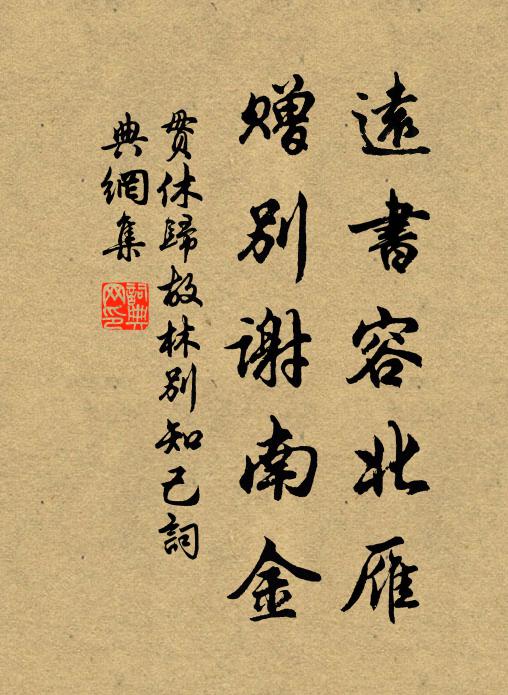 遠書容北雁
贈別謝南金
貫休歸故林別知己詞
典網集
詞典網印